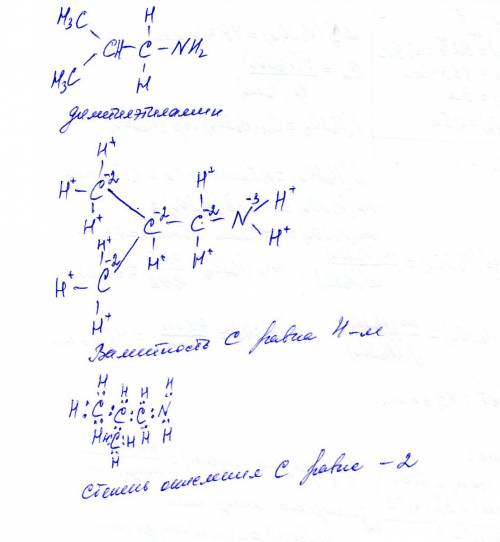 H
H₃C
CH – C – NH₂
H₃C
H
диметилэтиламин
H⁺
H⁺ – C⁻² H⁺
H⁺ C⁻² – C⁻² – N⁻³ H⁺
H⁺ H⁺ H⁺ H⁺
H⁺ – C⁻²
H⁺
Валентность C равна 4-м
H H H H
H : C : C : C : N
H H C H H H
H
Степень окисления C равна –2